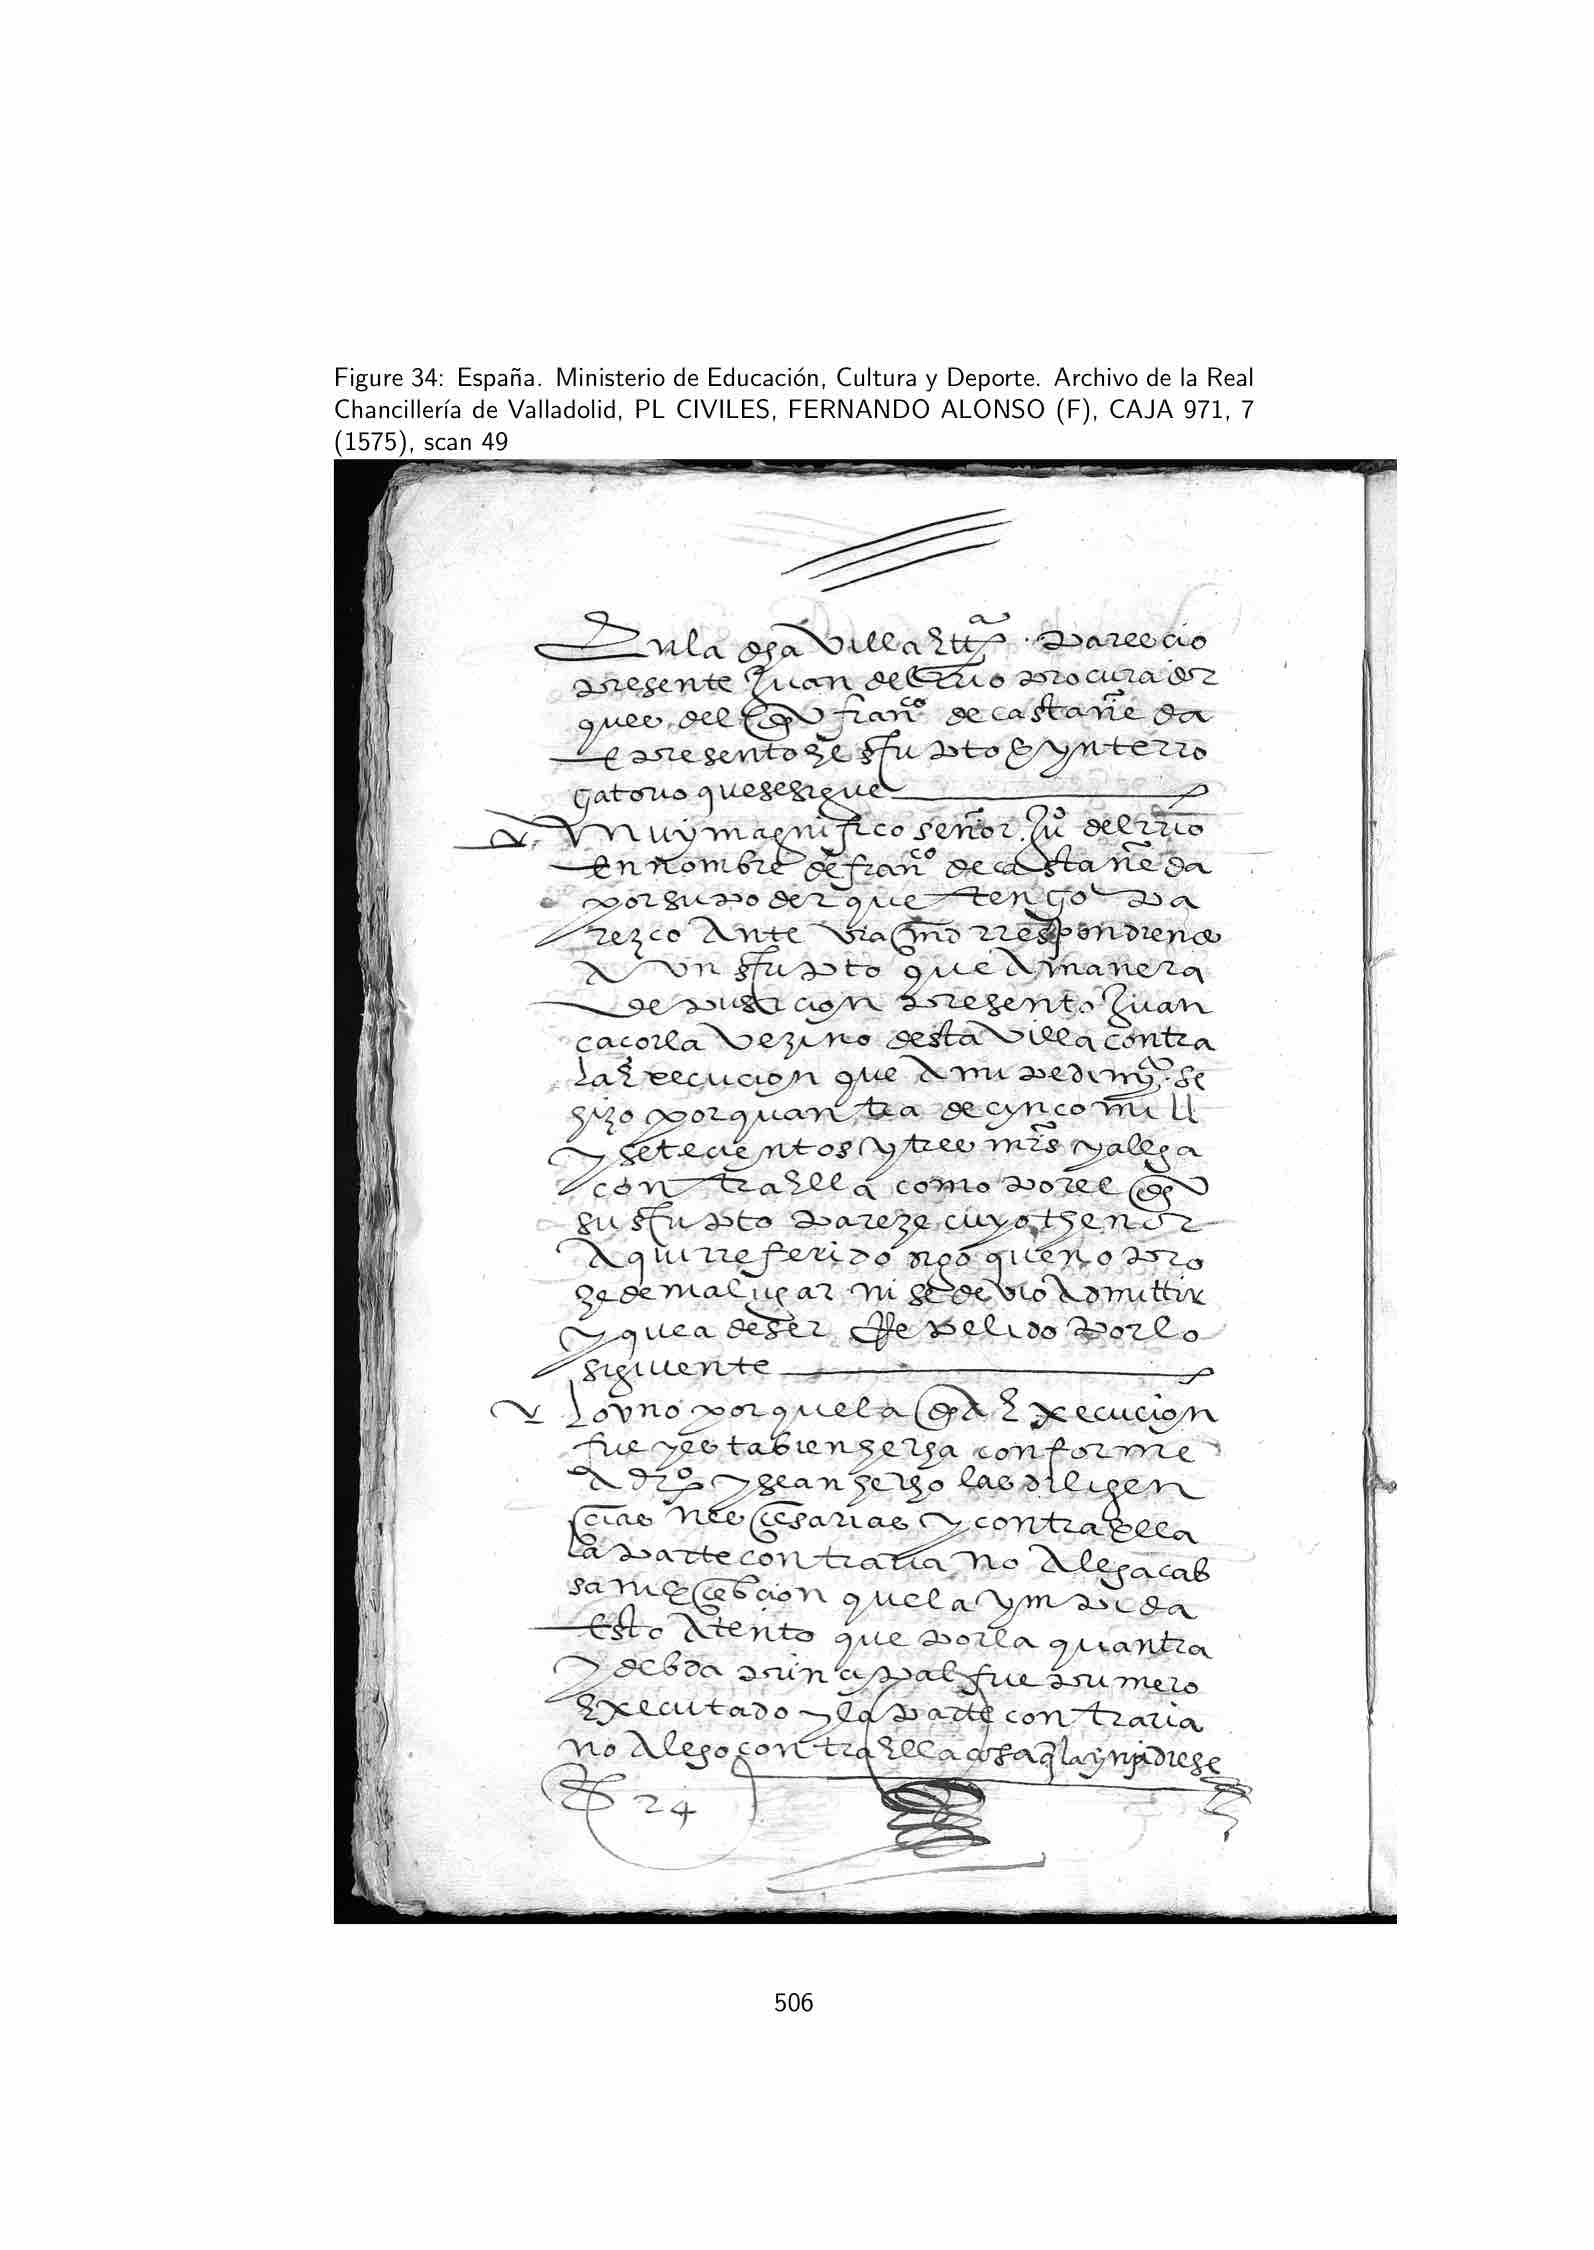 Figure 34: España. Ministerio de Educación, Cultura y Deporte. Archivo de la Real
Chancillería de Valladolid, PL CIVILES, FERNANDO ALONSO (F), CAJA 971, 7
(1575), scan 49
En la dha villa ett.ª parescio
presente Juan del rrio procurador
ques del dho franco de castañeda
e presento este escripto e ynterro
gatorio que se sigue
muy magnifico señor Juo del rrio
en nombre de franco de castañeda
por su poder que tengo pa
rezco ante vra md rrespondiendo
a un escripto que a manera
de pusicion presento Juan
caçorla vezino desta villa contra
la execucion que a mi pedimyo se
hizo por quantia de cinco mill
y setecientos y tres mrs y alega
contra ella como por el dho
su escripto pareze cuyo thenor
aqui rreferido digo que no pro
zede ma lugar ni se devio admittir
y que a de ser rrepelido por lo
siguiente
lo uno porque la dha execucion
fue y esta bien hecha conforme
a dro y se an hecho las diligen
cias nescesarias y contra ella
la parte contraria no alega cab
sa ni ecebcion que la ympida
esto atento que por la quantia
y debda principal fue primero
executado y la parte contraria
no alego contra ella cosa q la ynpidiese
24
506